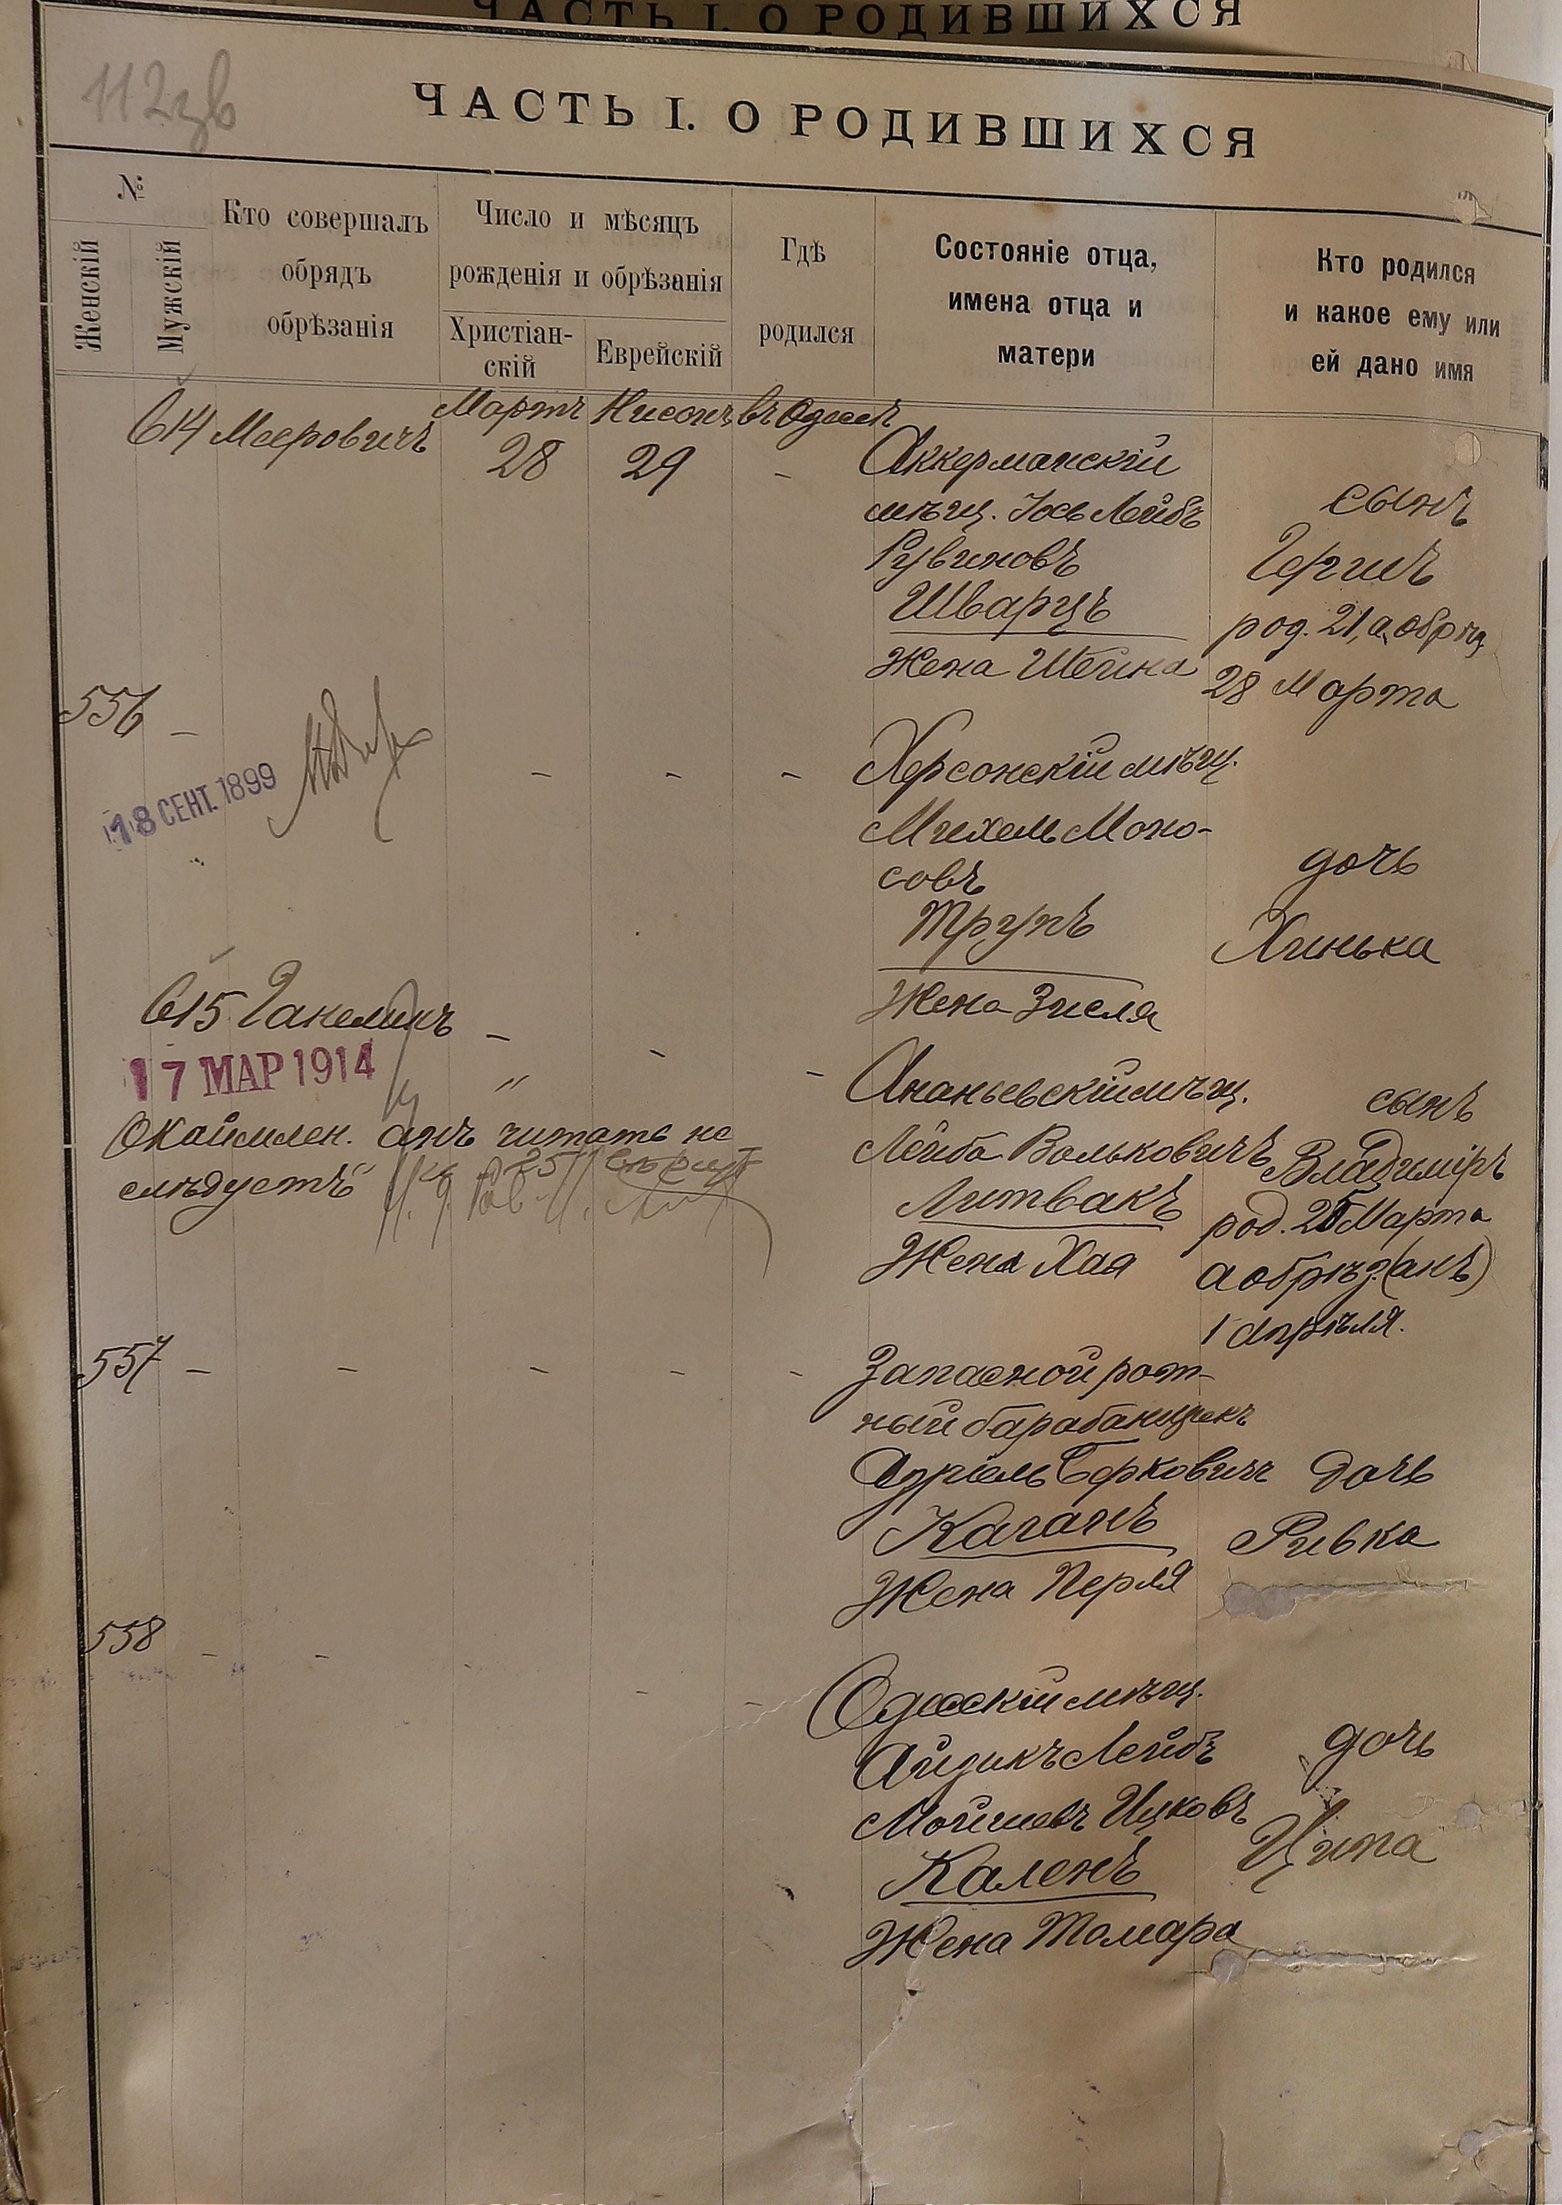 ЧАСТЬ I. О РОДИВШИХСЯ
112зв
ЧАСТЬ I. О РОДИВШИХСЯ
№
Женскій
Мужскій
Кто совершалъ
обрядъ
обрѣзанія
Число и мѣсяцъ
рожденія и обрѣзанія
Христіан-
скій
Еврейскій
Гдѣ
родился
Состояніе отца,
имена отца и
матери
Кто родился
и какое ему или
ей дано имя
614 Мееровичъ
Мартъ Нисонъ въ Одессѣ
28 29 -
Аккерманскій
мѣщ. Іось Лейбъ
Рувиновъ
Шварцъ
Жена Шейна
сынъ
Гершъ
род. 21, а обрѣз
28 Марта
556 -
18 СЕНТ. 1899
- - -
Херсонскій мѣщ.
Михель Моно-
совъ
Трупъ
Жена Зисля
дочь
Хинька
615 Ганелинъ - - -
17 МАР 1914
"
Окаймлен. анъ читать не
слѣдуетъ
Ананьевскій мѣщ.
Лейба Вольковичъ
Литвакъ
Жена Хая
сынъ
Владиміръ
род. 25 Марта
а обрѣз. (анъ)
1 апрѣля.
557 - - - - -
Запасной рот-
ный барабанщикъ
Азріель Берковичъ
Каганъ
Жена Перля
дочь
Ривка
558 - - - -
Одесскій мѣщ.
Айзикъ Лейбъ
Мойшевъ Ицковъ
Каленъ
Жена Томара
дочь
Ципа